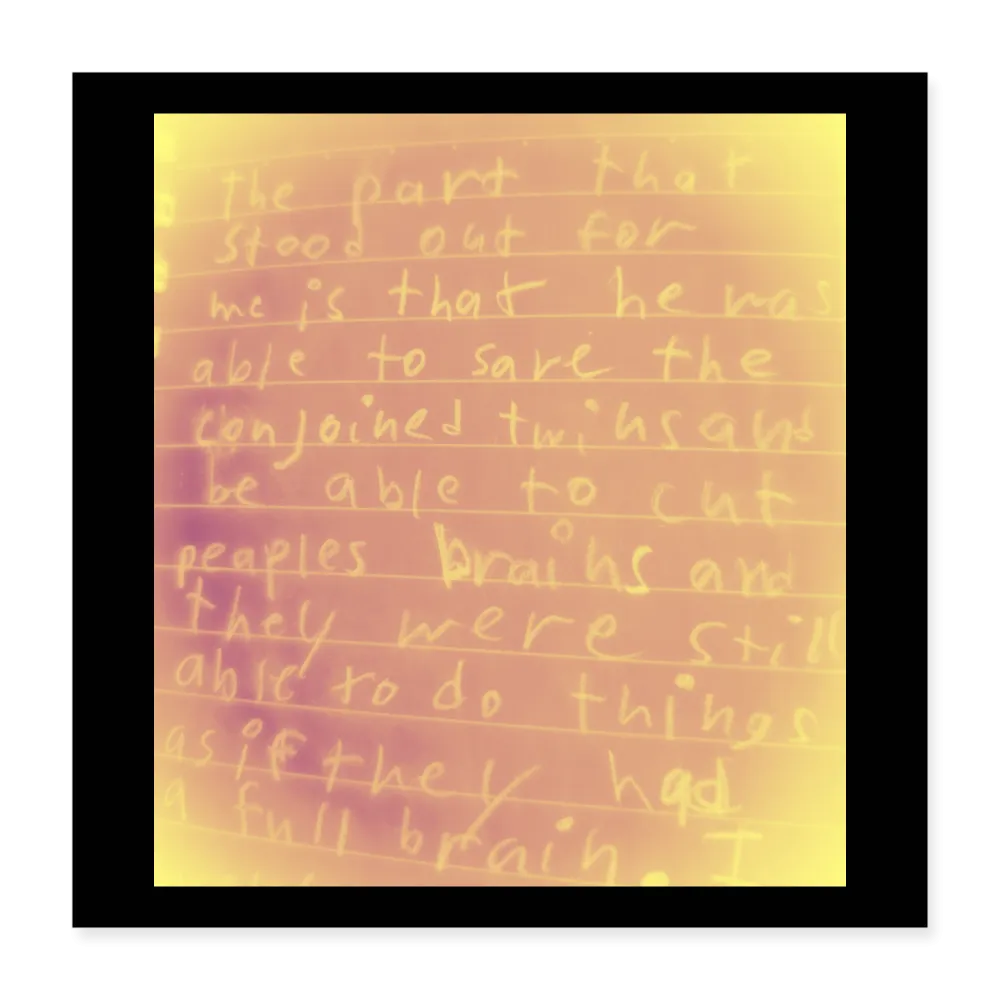 The part that
stood out for
me is that he was
able to save the
conjoined twins and
be able to cut
peaples brains and
they were still
able to do things
as if they had
a full brain. I